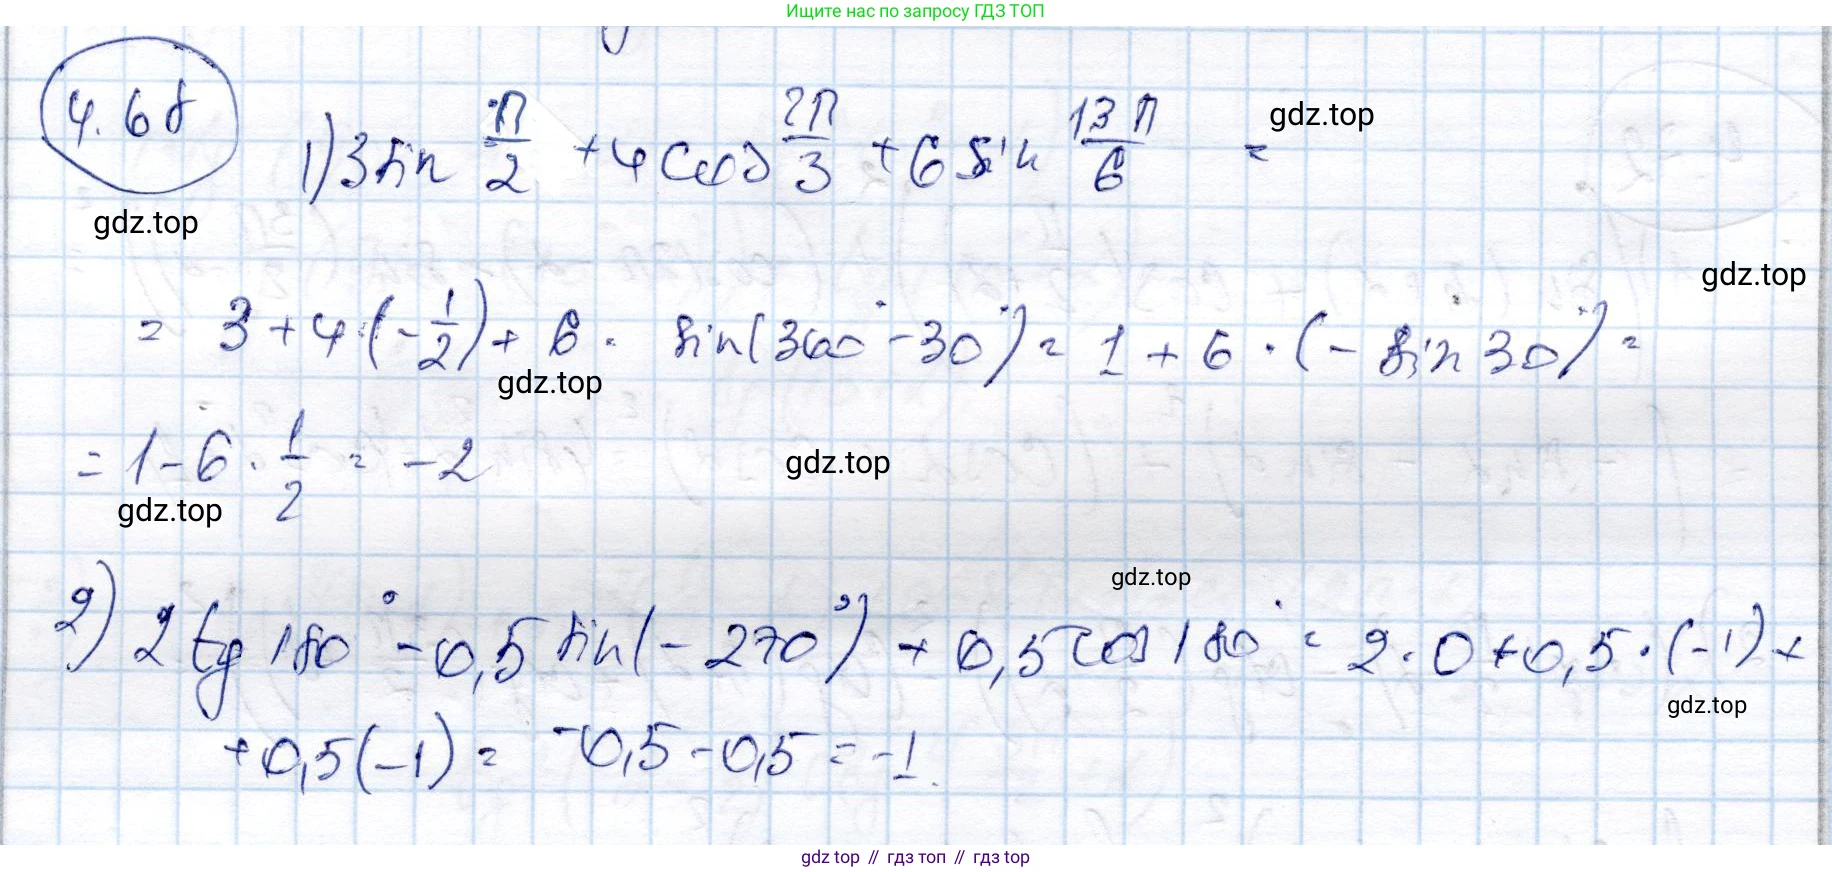 Ищите нас по запросу ГДЗ ТОП
4.6б
1) 3 sin π/2 + 4 cos 2π/3 + 6 sin 13π/6 =
gdz.top
gdz.top
gdz.top
= 3 + 4·(-1/2) + 6 · sin(360° - 30°) = 1 + 6 · (- sin 30°) =
gdz.top
= 1 - 6 · 1/2 = -2
gdz.top
gdz.top
gdz.top
2) 2 tg 180° - 0,5 sin(-270°) + 0,5 cos 180° = 2·0 + 0,5·(-1) +
gdz.top
+ 0,5(-1) = -0,5 - 0,5 = -1.
gdz top // гдз топ // гдз top